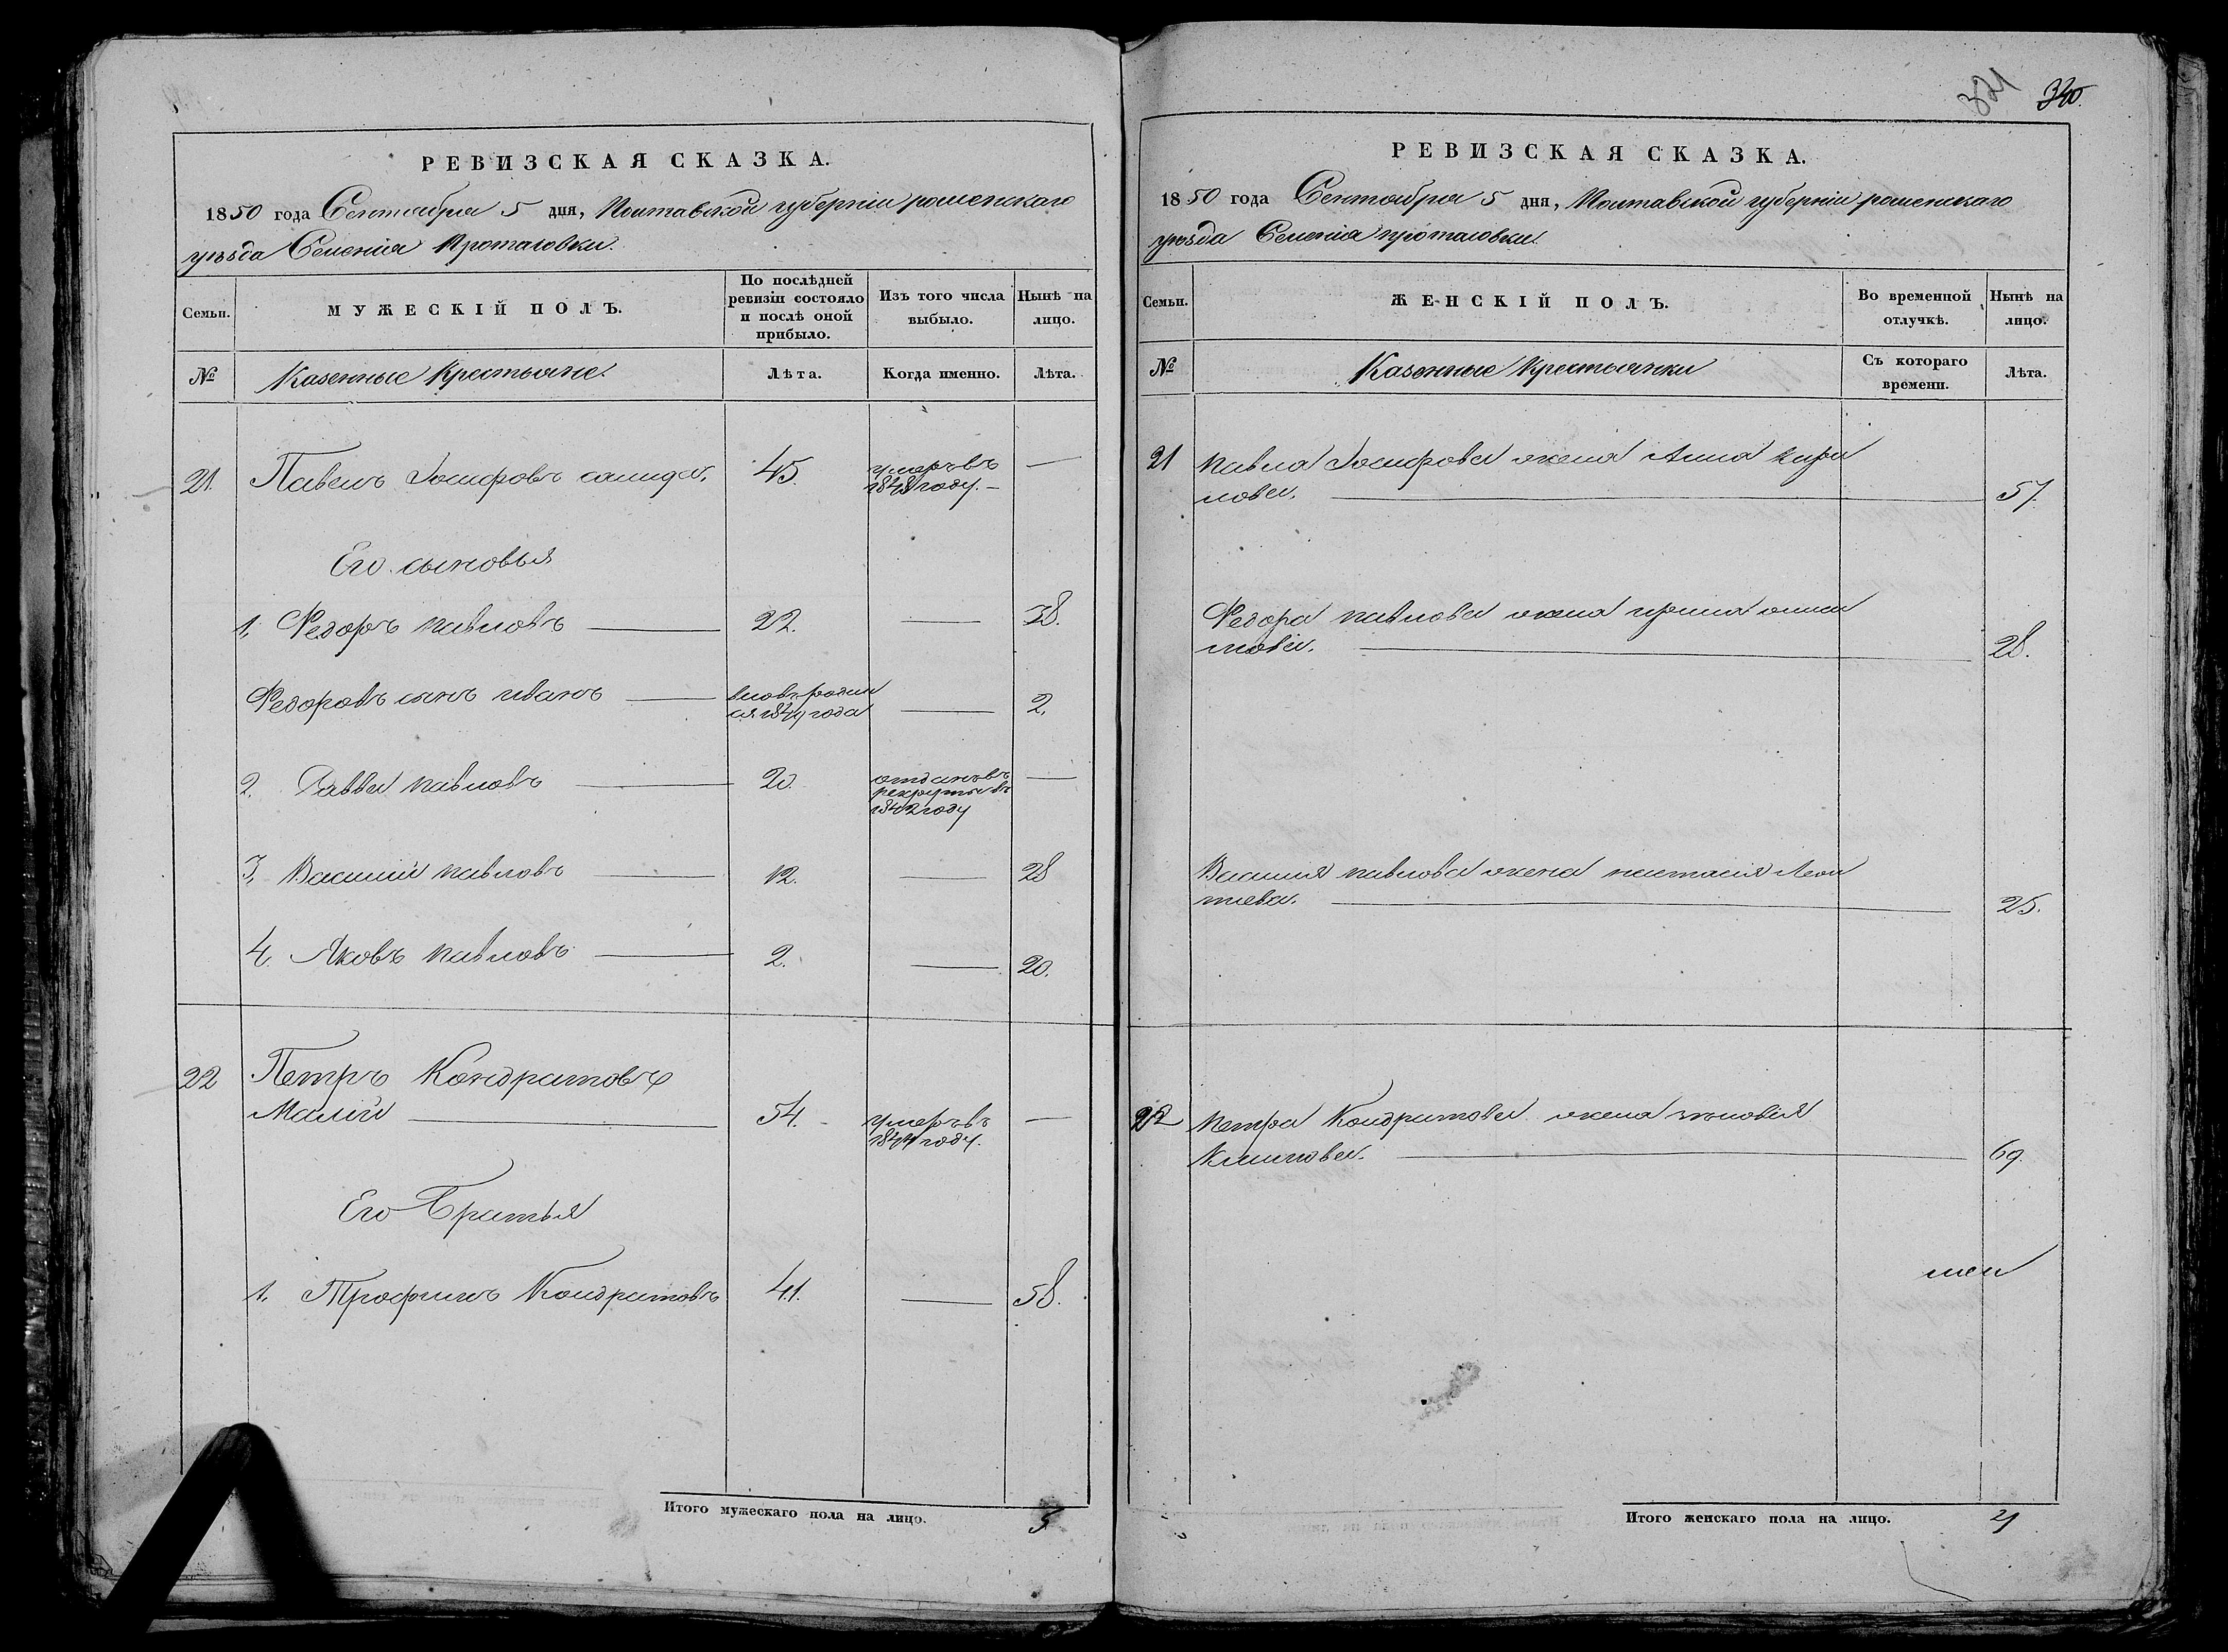 РЕВИЗСКАЯ СКАЗКА.
1850 года Сентября 5 дня, Полтавской губерніи роменскаго
уѣзда Селенія Протасовки.
Семьи.
МУЖЕСКІЙ ПОЛЪ.
По послѣдней ревизіи состояло и послѣ оной прибыло.
Изъ того числа выбыло.
Нынѣ на лицо.
№
Казенные Крестьяне.
Лѣта.
Когда именно.
Лѣта.
21. Павелъ Іосифовъ 45. умеръ въ —
1848 году. —
Его сыновья
1, Федоръ павловъ — 22. — 38.
Федоровъ сынъ иванъ — вновь родил — 2.
ся 1849 года
2. Савва павловъ — 20. отданъ въ —
рекруты въ
1842 году
3, Василій павловъ — 12. — 28
4. Яковъ павловъ — 2. — 20.
22 Петръ Кондратовъ
Малій — 54. умеръ въ —
1844 году.
Его Братья
1. Трофимъ Кондратовъ 41. — 58.
Итого мужескаго пола на лицо. 5
321 340.
РЕВИЗСКАЯ СКАЗКА.
1850 года Сентября 5 дня, Полтавской губерніи роменскаго
уѣзда Селенія протасовки.
Семьи.
ЖЕНСКІЙ ПОЛЪ.
Во временной отлучкѣ.
Нынѣ на лицо.
№
Казенные Крестьянки
Съ котораго времени.
Лѣта.
21 павла Іосифова жена Анна кири
лова. — 57.
Федора павлова жена ирина
28.
Василія павлова жена настасія Леон
тиева. — 25.
22 петра Кондратова жена зѣновія
Климова. — 69.
Итого женскаго пола на лицо. 4